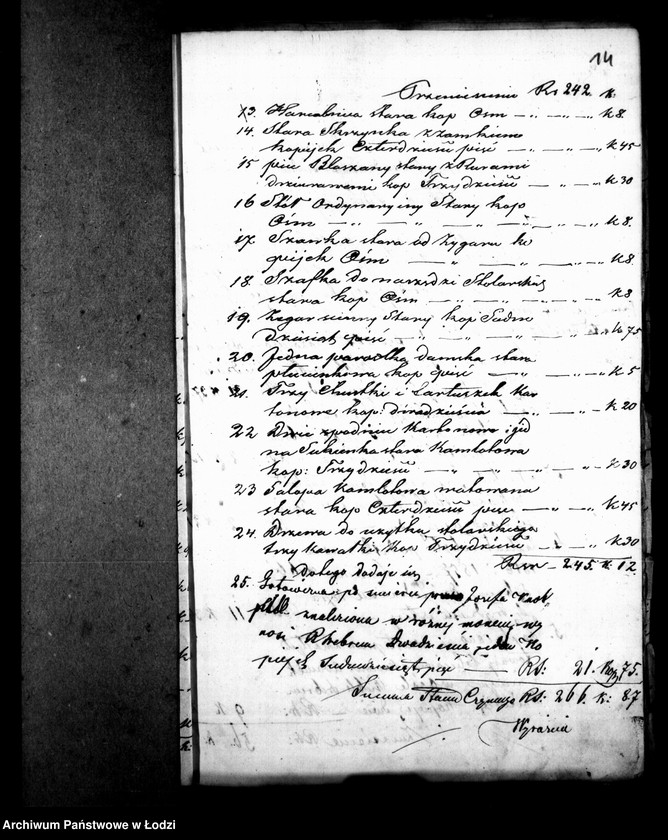 14
Przeniesienie Rs 242 k.
13. stara kop Ośm — „ — „ — k 8.
14. Stara Skrzynka z zamkiem
kopijek Czterdzieści pięć — „ — „ — k 45
15 piec Blaszany stary z Rurami
dziurawemi kop Trzydzieści — „ — k 30
16 Stół Ordynaryiny Stary kop
Ośm — „ — „ — „ — „ — k 8.
17. Szawka stara od Zygaru ko
pijek Ośm — „ — „ — k 8.
18. Szafka do narzędzi Stolarskich
stara kop Ośm — „ — „ — „ — k 8
19. Zegar scinny Stary kop Siedm
dziesiąt pięć — „ — „ — „ — k 75
20. Jedna parasolka damska stara
płucienkowa kop pięć — „ — „ — k 5
21. Trzy Chustki i Fartuszek Kar
tonowe kop. dwadzieścia — „ — „ — k 20
22 Dwie spodnice Kartonowe i jed
na Sukienka stara Kamlotowa
kop: Trzydzieści — „ — „ — „ — k 30
23 Salopa Kamlotowa watowana
stara kop Czterdzieści pięć — „ — k 45
24. Drzewa do użytku stolarskiego
trzy kawałki kop Trzydzieści — „ — k 30
Rsr — 245. k 12
Do tego dodaje się
25. Gotowizna po śmierci Józefa
znaleziona w różnej monecie wy
nosi Rubli srebrem Dwadzieścia jeden ko
pijek Siedmdziesiąt pięć — Rs: 21. kop 75.
Summa Stanu Czynnego Rs: 266. k: 87
Wyraźnie
Archiwum Państwowe w Łodzi